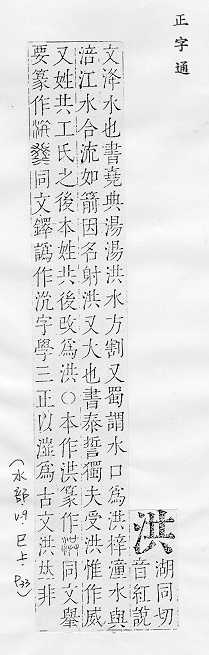 正字通
洪
湖同切
音紅說
文洚水也書堯典湯湯洪水方割又蜀謂水口爲洪梓潼水與
涪江水合流如箭因名射洪又大也書泰誓獨夫受洪惟作威
又姓共工氏之後本姓共後改爲洪○本作洪篆作 同文舉
要篆作 同文鐸譌作沇字學三正以 爲古文洪𠀤非
(水部 V.9. 巳上. P33)